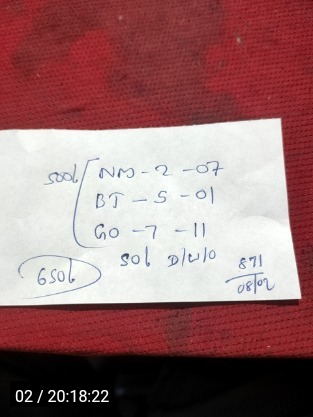 500/ NM - 2 - 07
BT - 5 - 01
GO - 7 - 11
50/ D/W/O
650/
871
08/02
02 / 20:18:22